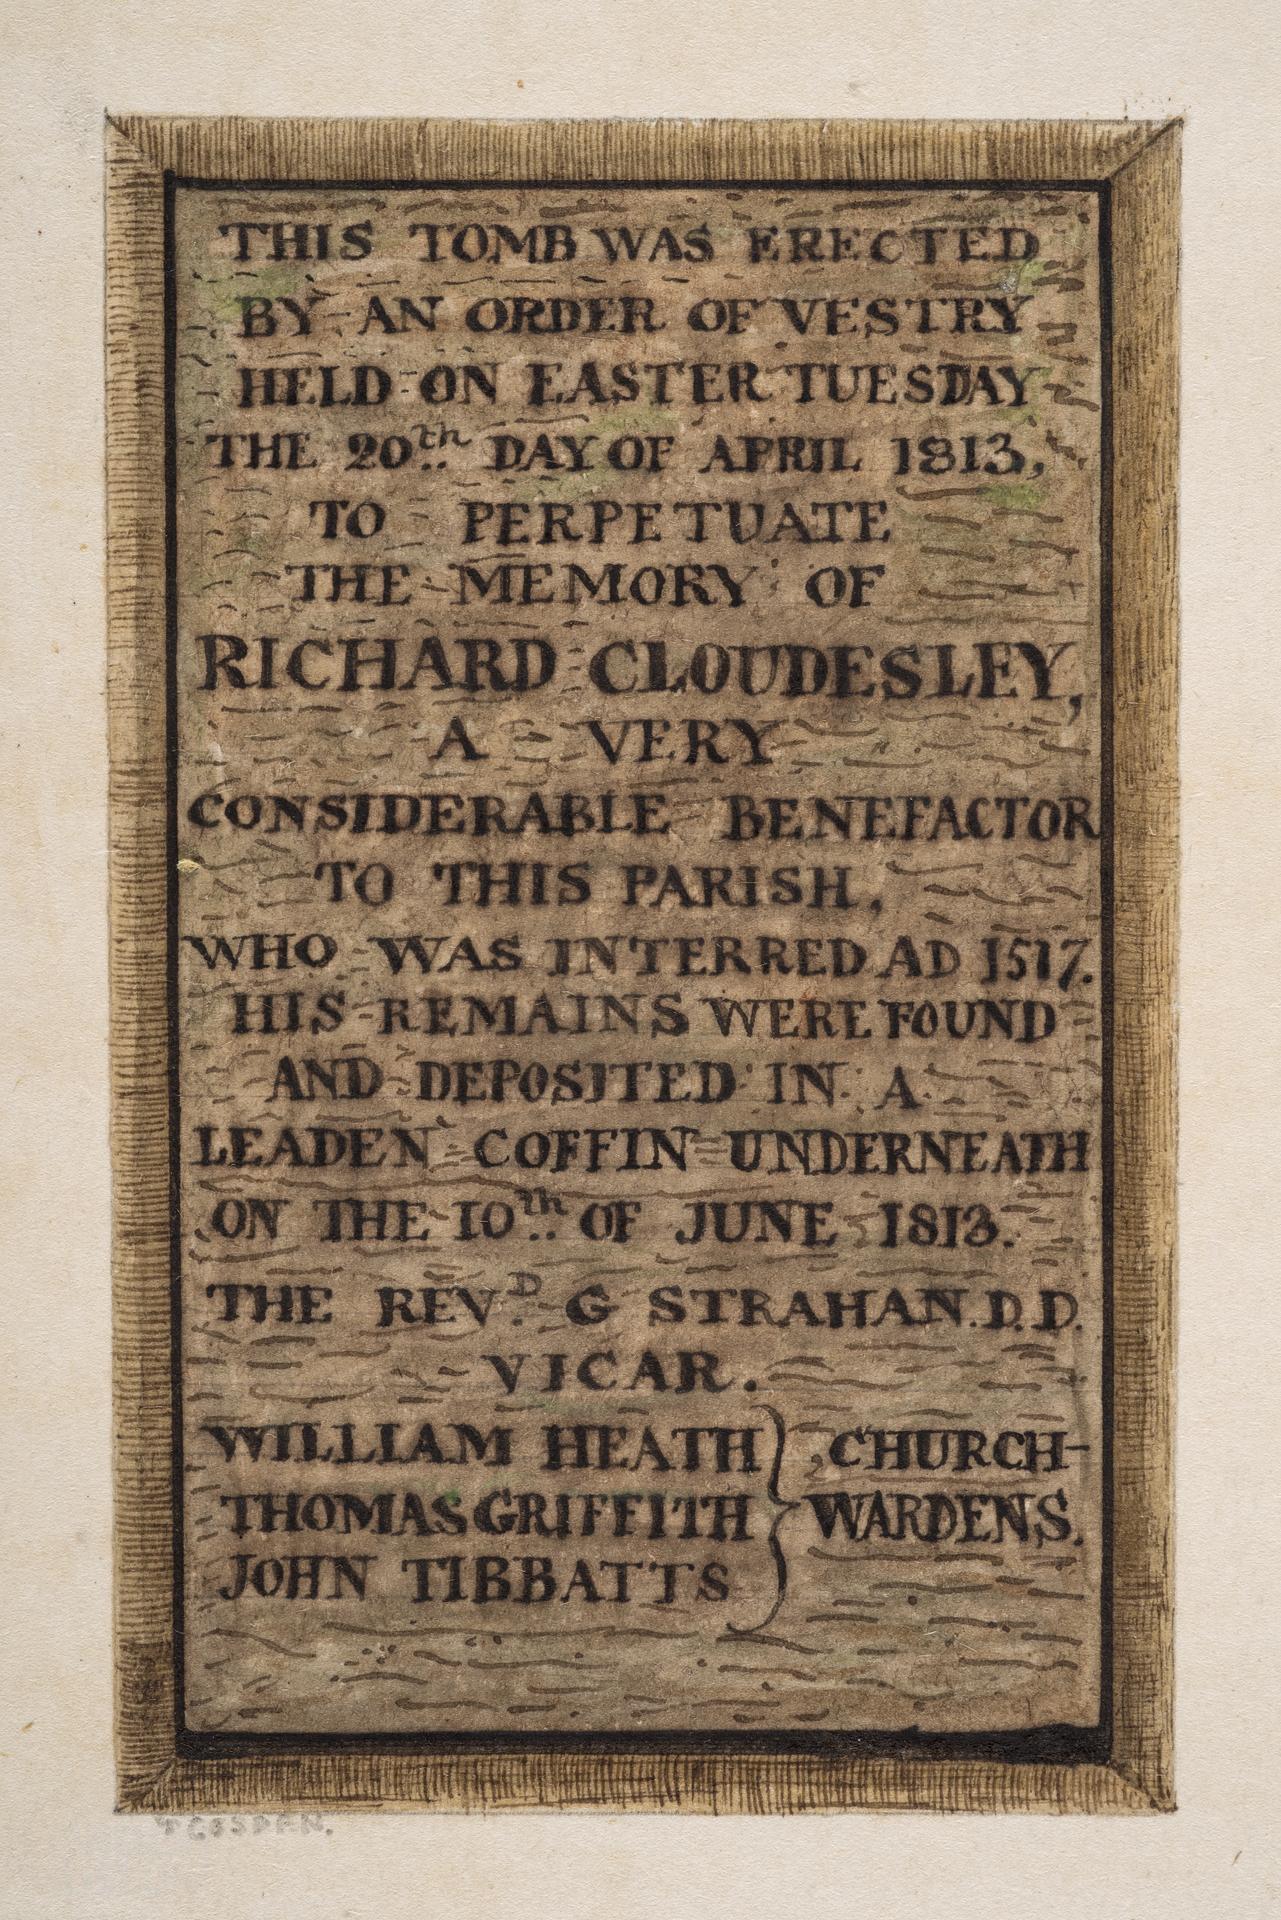 THIS TOMB WAS ERECTED
BY AN ORDER OF VESTRY
HELD ON EASTER TUESDAY
THE 20th DAY OF APRIL 1813,
TO PERPETUATE
THE MEMORY OF
RICHARD CLOUDESLEY,
A VERY
CONSIDERABLE BENEFACTOR
TO THIS PARISH,
WHO WAS INTERRED AD 1517.
HIS REMAINS WERE FOUND
AND DEPOSITED IN A
LEADEN COFFIN UNDERNEATH
ON THE 10th OF JUNE 1813.
THE REVD G STRAHAN. D.D.
VICAR.
WILLIAM HEATH } CHURCH-
THOMAS GRIFFITH } WARDENS.
JOHN TIBBATTS
T GOSDEN.